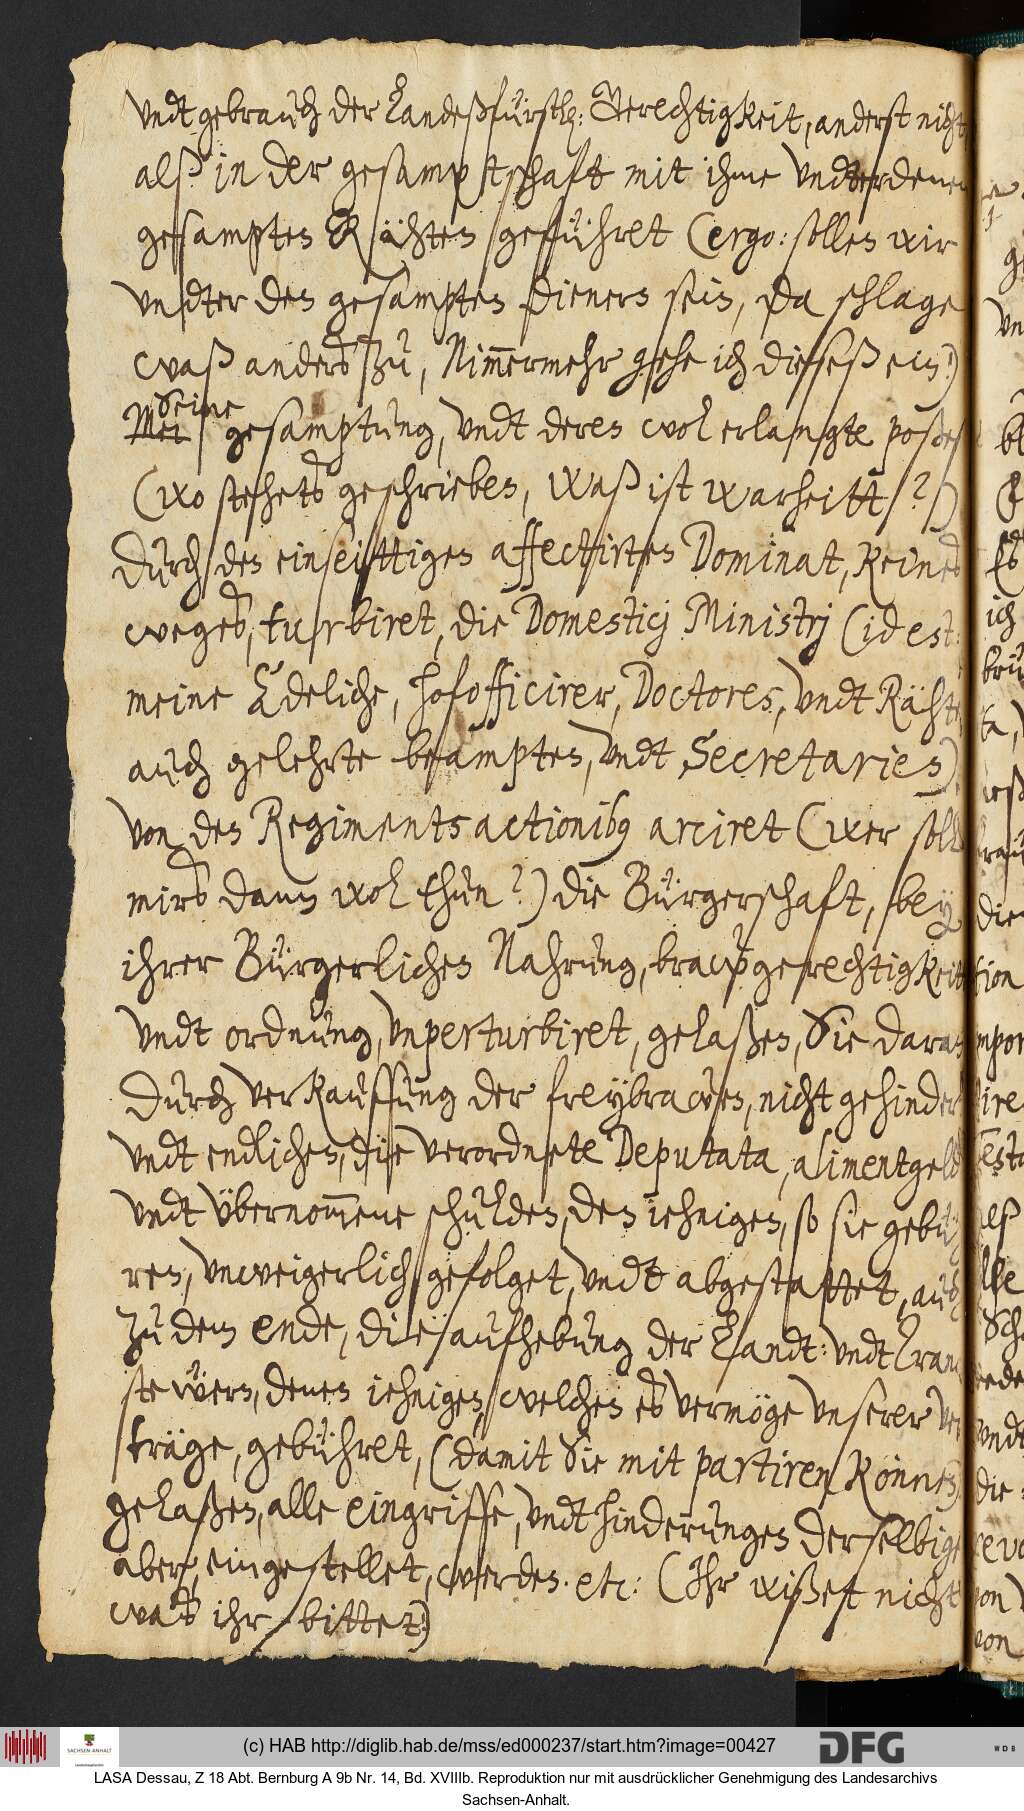 vndt gebrauch der Landeßfürstl: Gerechtigkeit, anderst nicht
alß in der gesamptschaft mit ihme vndter denen
gesampten Rähten geführet (ergo: sollen wir
vndter den gesampten dienern sein, da schlage
waß anders zu, Nimmermehr gehe ich dieses ein!)
Mei Seine gesamptung, vndt deren wol erlangte poßeß
(wo stehets geschrieben, waß ist warheitt?)
durch den einseittigen affectirten Dominat, Keines
weges, turbiret, die Domesticj Ministrj (id est:
meine Edeliche, hofofficirer, Doctores, vndt Rähte
auch gelehrte beampten, vndt Secretarien)
von den Regimentsactionibus arciret (wer soll
mirs dann wol thun?) die Bürgerschaft, bey
ihrer Bürgerlichen Nahrung, brawgerechtigkeit
vndt ordnung, vnperturbiret, gelaßen, Sie daran
durch verkauffung der freybrawen, nicht gehindert
vndt endlichen, die verordnete Deputata, alimentgeld
vndt übernommene schulden, den iehnigen, so sie gebüh
ren, vnweigerlich gefolget, vndt abgestattet, auch
zu dem ende, die aufhebung der Landt: vndt Tranck
stewern, denen iehnigen, welchen es vermöge vnserer ver
träge, gebühret, (damit Sie mit partiren können)
gelaßen, alle eingriffe, vndt hinderungen derselbigen
aber, eingestellet, werden. etc: (Ihr wißet nicht
was ihr bittet!)
(c) HAB http://diglib.hab.de/mss/ed000237/start.htm?image=00427
DFG
WDB
SACHSEN-ANHALT
LASA Dessau, Z 18 Abt. Bernburg A 9b Nr. 14, Bd. XVIIIb. Reproduktion nur mit ausdrücklicher Genehmigung des Landesarchivs
Sachsen-Anhalt.